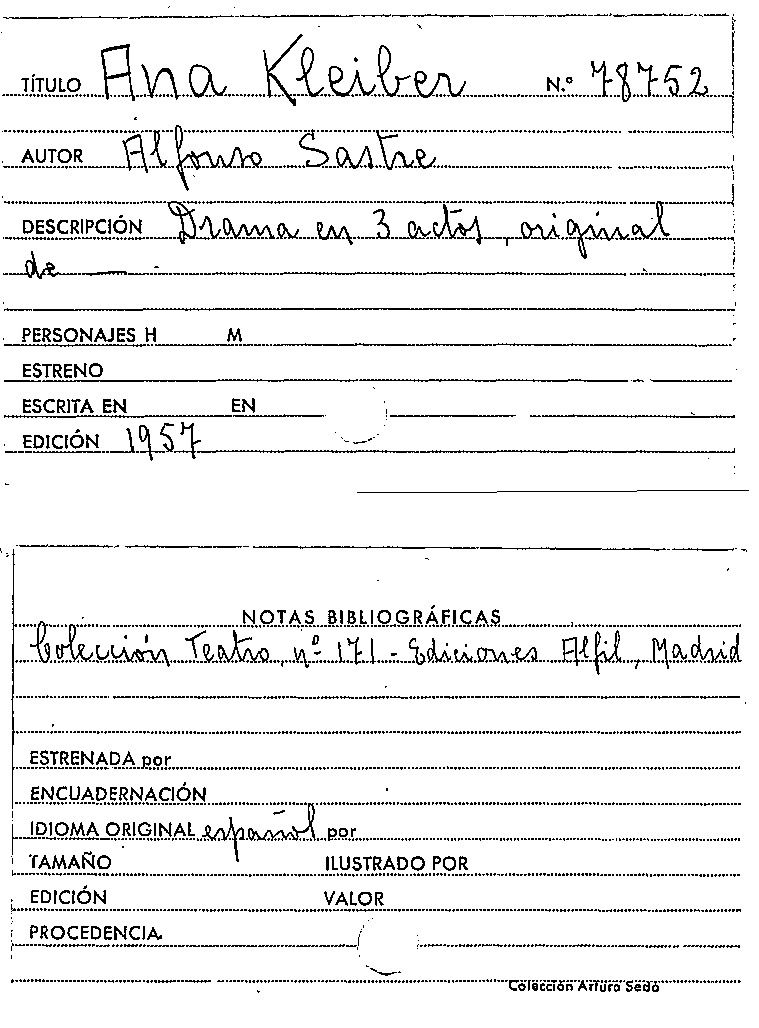 TÍTULO Ana Kleiber N.º 78752
AUTOR Alfonso Sastre
DESCRIPCIÓN Drama en 3 actos, original
de ——.
PERSONAJES H M
ESTRENO
ESCRITA EN EN
EDICIÓN 1957
NOTAS BIBLIOGRÁFICAS
Colección Teatro, nº 171 - Ediciones Alfil, Madrid
ESTRENADA por
ENCUADERNACIÓN
IDIOMA ORIGINAL español por
TAMAÑO ILUSTRADO POR
EDICIÓN VALOR
PROCEDENCIA
Colección Arturo Sedó